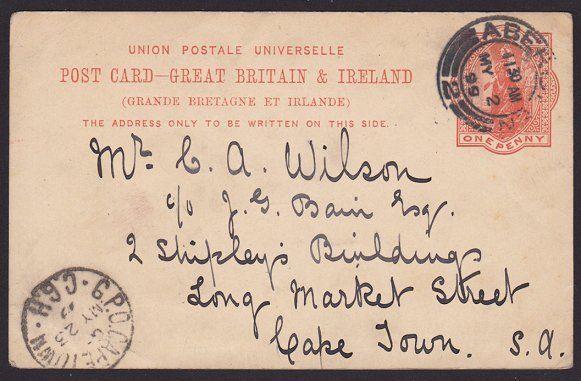 UNION POSTALE UNIVERSELLE
POST CARD—GREAT BRITAIN & IRELAND
(GRANDE BRETAGNE ET IRLANDE)
THE ADDRESS ONLY TO BE WRITTEN ON THIS SIDE.
ONE PENNY
MY 2
99
2
Mr. C. A. Wilson
c/o J. G. Bain Esq.
2 Shipley's Buildings
Long Market Street
Cape Town. S. A.
G.P.O. CAPETOWN · C.G.H.
MY 23